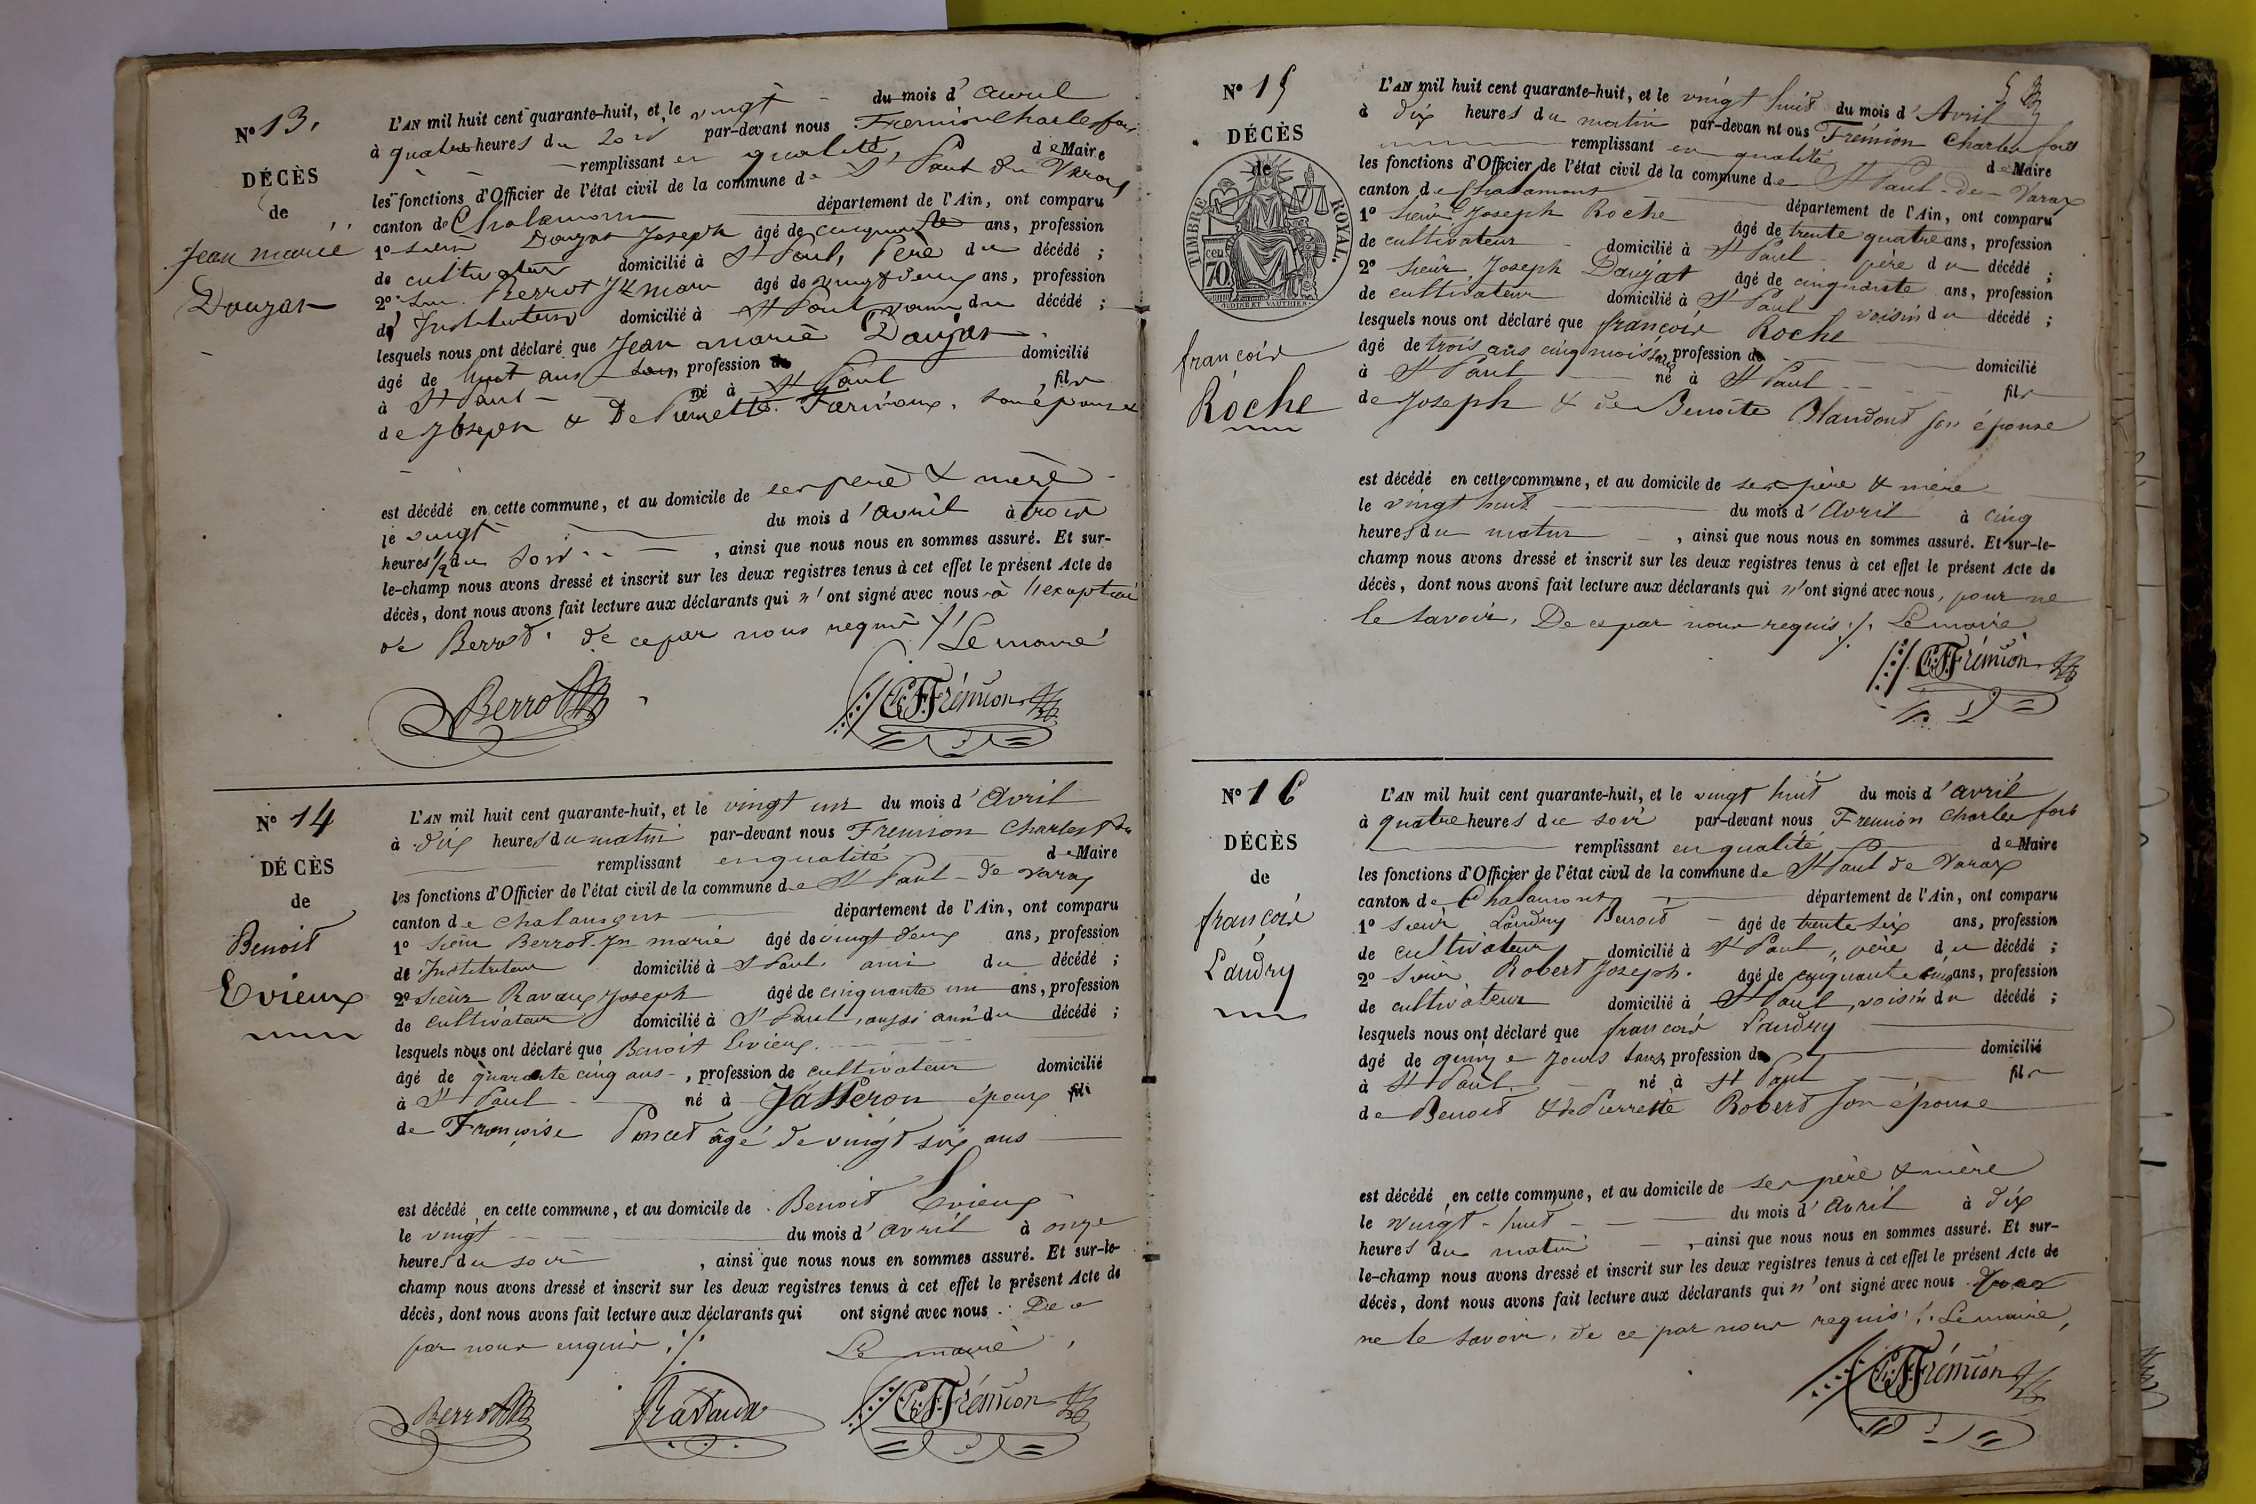 N° 13.
DÉCÈS
de
Jean marie
Douzat
L'AN mil huit cent quarante-huit, et le vingt du mois d'avril
à quatre heures du soir par-devant nous Fremion Charles fois
remplissant en qualité de Maire
les fonctions d'Officier de l'état civil de la commune de St Paul de Varax
canton de Chalamont département de l'Ain, ont comparu
1° sieur Douzat Joseph âgé de cinquante ans, profession
de cultivateur domicilié à St Paul, Père du décédé ;
2° sieur Berrot Jn marie âgé de vingt deux ans, profession
d'Instituteur domicilié à St Paul voisin du décédé ;
lesquels nous ont déclaré que Jean marie Douzat
âgé de huit ans sans profession de domicilié
à St Paul né à St Paul, fils
de Joseph & De Pierrette son épouse
est décédé en cette commune, et au domicile de ses père & mère
le vingt du mois d'avril à trois
heures 1/2 du soir, ainsi que nous nous en sommes assuré. Et sur-
le-champ nous avons dressé et inscrit sur les deux registres tenus à cet effet le présent Acte de
décès, dont nous avons fait lecture aux déclarants qui n'ont signé avec nous à l'exception
de Berrot. de ce par nous requis ./. Le maire
Berrot
Ch. F. Frémion
N° 14
DÉCÈS
de
Benoit
Evieux
L'AN mil huit cent quarante-huit, et le vingt un du mois d'Avril
à dix heures du matin par-devant nous Fremion Charles fois
remplissant en qualité de Maire
les fonctions d'Officier de l'état civil de la commune de St Paul de varax
canton de Chalamont département de l'Ain, ont comparu
1° sieur Berrot Jn marie âgé de vingt deux ans, profession
de Instituteur domicilié à St Paul. ami du décédé ;
2° sieur Ravaux Joseph âgé de cinquante un ans, profession
de cultivateur domicilié à St Paul, aussi ami du décédé ;
lesquels nous ont déclaré que Benoit Evieux
âgé de quarante cinq ans, profession de cultivateur domicilié
à St Paul né à Jasseron époux fils
de Françoise Poncet âgé de vingt six ans
est décédé en cette commune, et au domicile de Benoit Evieux
le vingt du mois d'avril à onze
heures du soir, ainsi que nous nous en sommes assuré. Et sur-le-
champ nous avons dressé et inscrit sur les deux registres tenus à cet effet le présent Acte de
décès, dont nous avons fait lecture aux déclarants qui ont signé avec nous. De ce
par nous enquis ./.
Le maire
Berrot
Ravaux
Ch. F. Frémion
N° 15
DÉCÈS
de
TIMBRE ROYAL.
70 cen
françois
Roche
L'AN mil huit cent quarante-huit, et le vingt huit du mois d'Avril
à dix heures du matin par-devan nt ous Fremion Charles fois
remplissant en qualité de Maire
les fonctions d'Officier de l'état civil de la commune de St Paul-de-Varax
canton de Chalamont département de l'Ain, ont comparu
1° sieur Joseph Roche âgé de trente quatre ans, profession
de cultivateur domicilié à St Paul père du décédé ;
2° sieur Joseph Douzat âgé de cinquante ans, profession
de cultivateur domicilié à St Paul voisin du décédé ;
lesquels nous ont déclaré que françois Roche
âgé de trois ans cinq mois, sans profession de domicilié
à St Paul né à St Paul fils
de Joseph & de Benoite Blandont son épouse
est décédé en cette commune, et au domicile de ses père & mère
le vingt huit du mois d'Avril à cinq
heures du matin, ainsi que nous nous en sommes assuré. Et sur-le-
champ nous avons dressé et inscrit sur les deux registres tenus à cet effet le présent Acte de
décès, dont nous avons fait lecture aux déclarants qui n'ont signé avec nous, pour ne
le savoir, De ce par nous requis ./. Le maire
Ch. F. Frémion
N° 16
DÉCÈS
de
françois
Landry
L'AN mil huit cent quarante-huit, et le vingt huit du mois d'avril
à quatre heures du soir par-devant nous Fremion Charles fois
remplissant en qualité de Maire
les fonctions d'Officier de l'état civil de la commune de St Paul de Varax
canton de Chalamont département de l'Ain, ont comparu
1° sieur Landry Benoit âgé de trente six ans, profession
de cultivateur domicilié à St Paul, père du décédé ;
2° sieur Robert Joseph. âgé de cinquante cinq ans, profession
de cultivateur domicilié à St Paul, voisin du décédé ;
lesquels nous ont déclaré que françois Landry
âgé de quinze jours sans profession de domicilié
à St Paul. né à St Paul fils
de Benoit & de Pierrette Robert son épouse
est décédé en cette commune, et au domicile de ses père & mère
le vingt-huit du mois d'Avril à dix
heures du matin, ainsi que nous nous en sommes assuré. Et sur-
le-champ nous avons dressé et inscrit sur les deux registres tenus à cet effet le présent Acte de
décès, dont nous avons fait lecture aux déclarants qui n'ont signé avec nous pour
ne le savoir, de ce par nous requis ./. Le maire,
Ch. F. Frémion